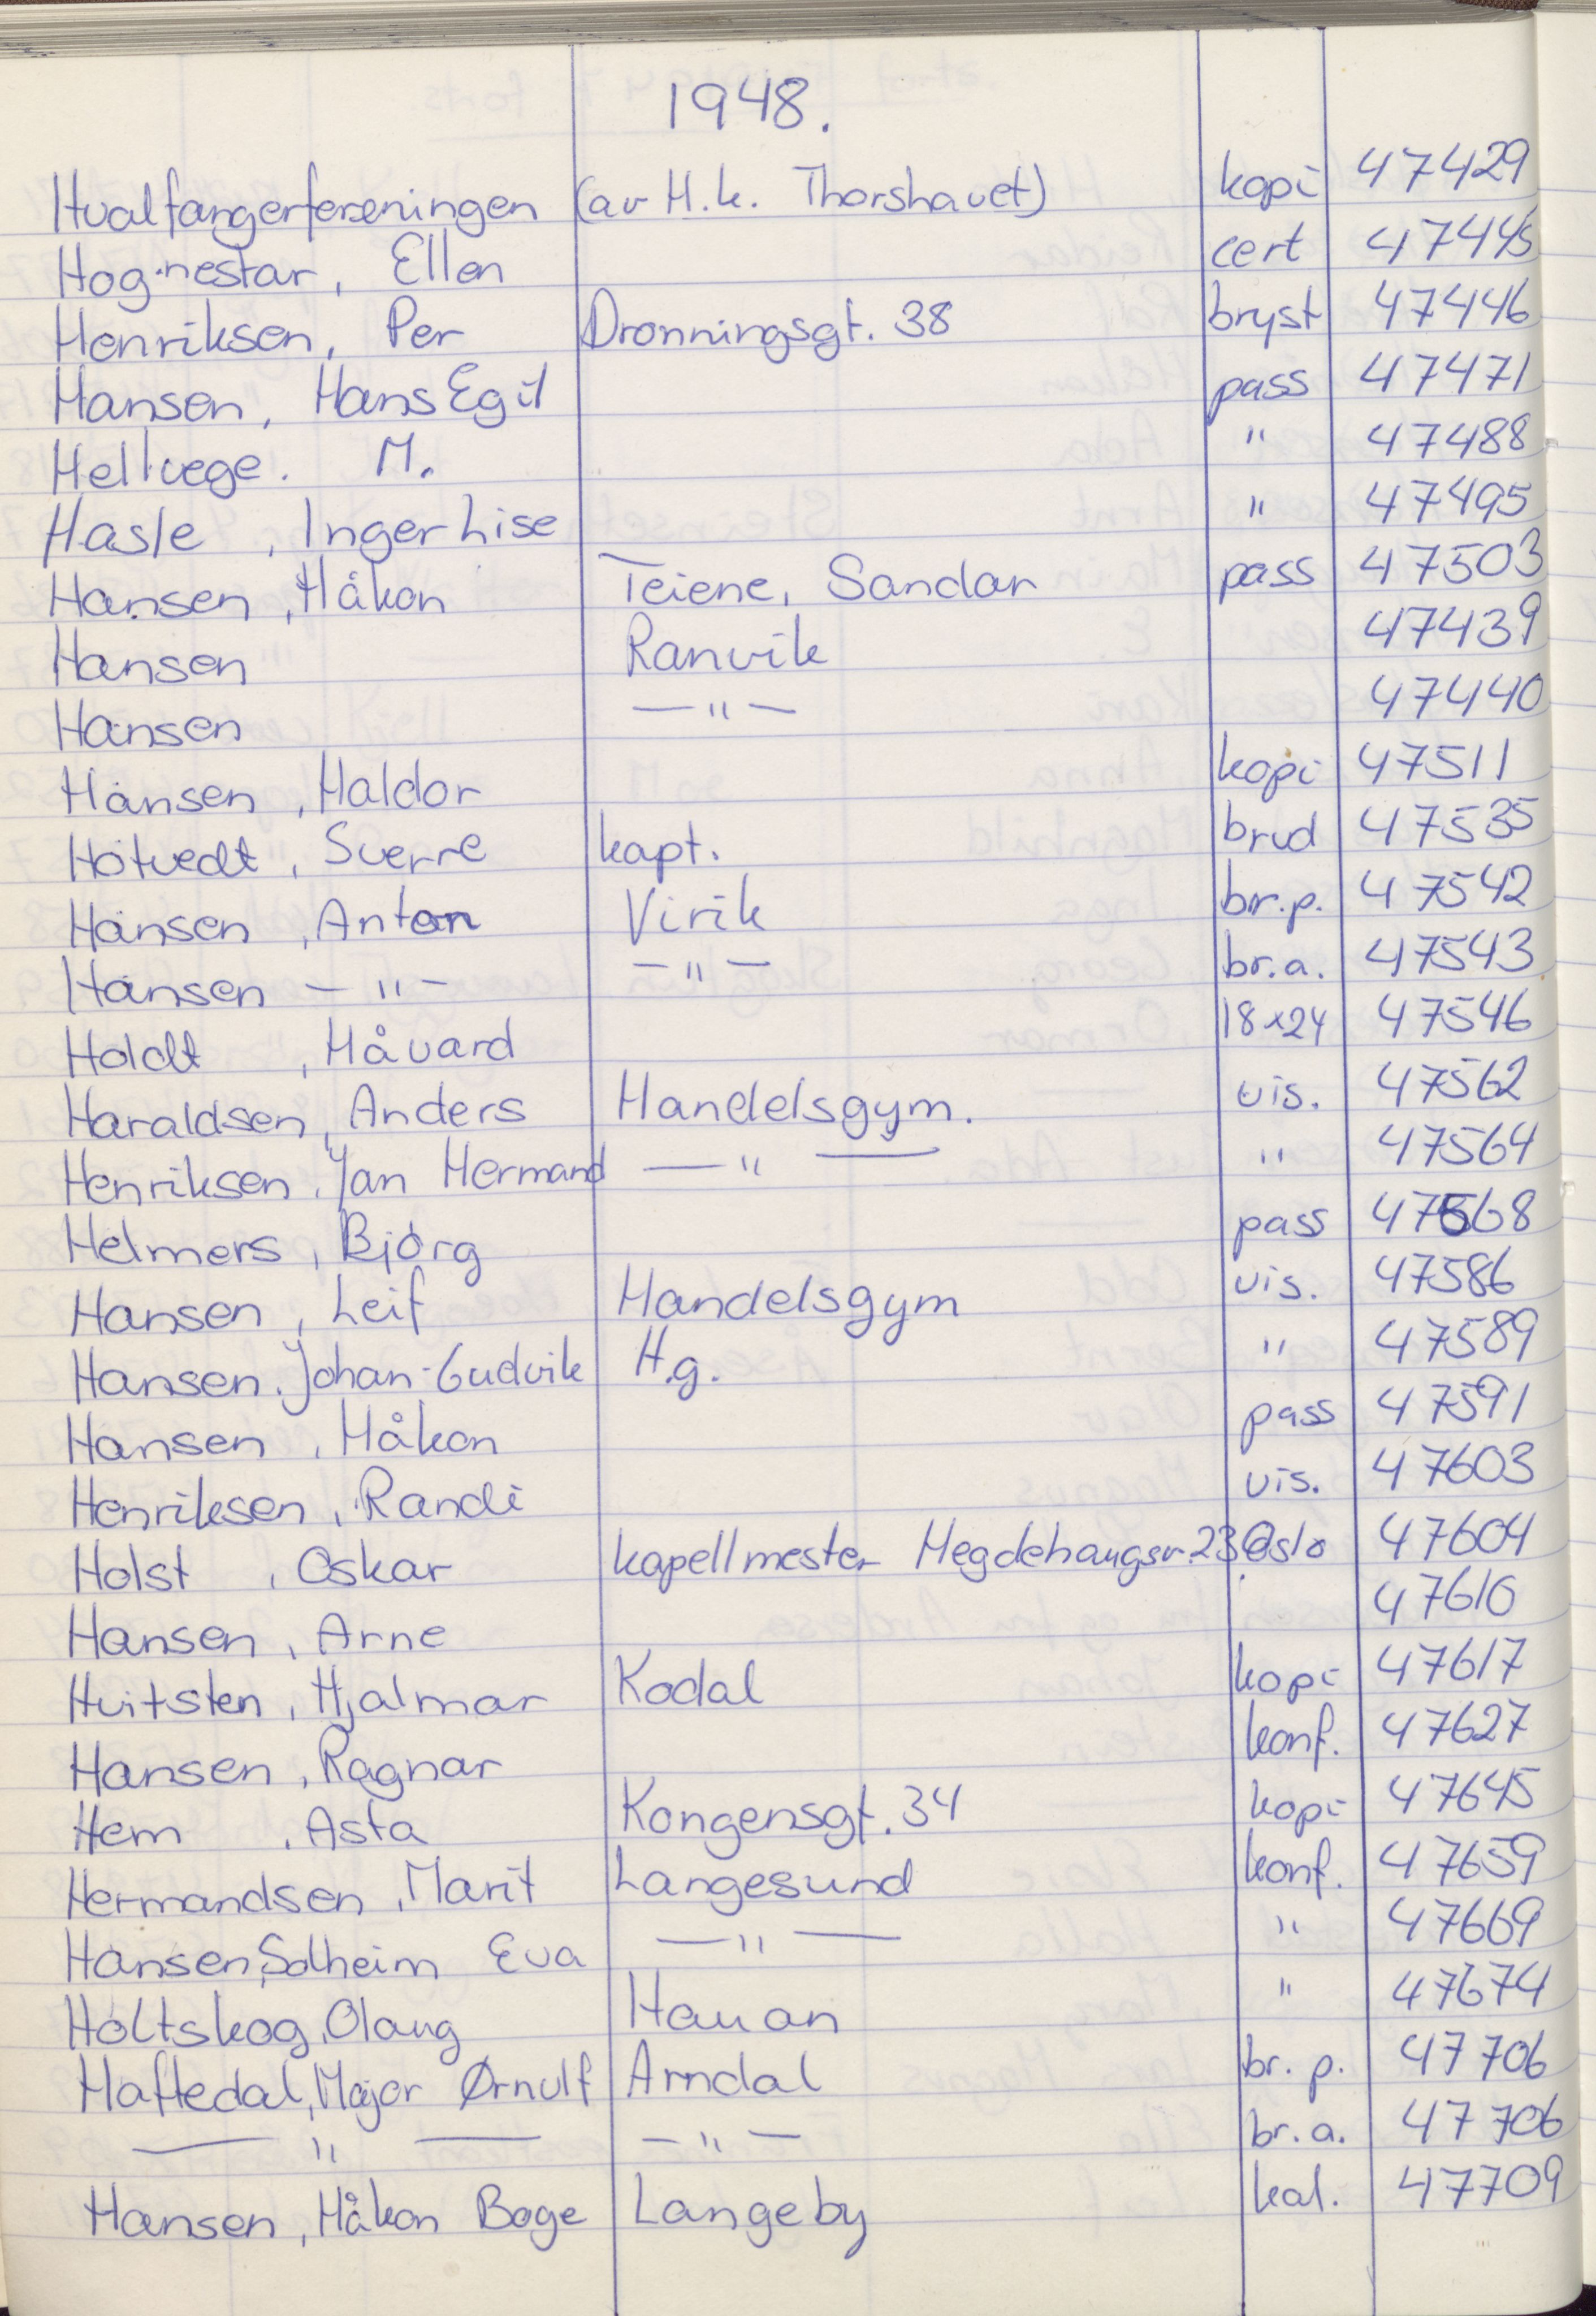 1948.
Hvalfangerforeningen (av H.k. Thorshavet) kopi 47429
Hog-nestar, Ellen cert 47445
Henriksen, Per Dronningsgt. 38 bryst 47446
Hansen, Hans Egil pass 47471
Hellvege. M. " 47488
Hasle, Inger Lise " 47495
Hansen, Håkon Teiene, Sandar pass 47503
Hansen Ranvik 47439
Hansen — " — 47440
Hansen, Haldor kopi 47511
Hotvedt, Sverre kapt. brud 47535
Hansen, Anton Virik br.p. 47542
Hansen — " — — " — br.a. 47543
Holdt, Håvard 18x24 47546
Haraldsen, Anders Handelsgym. vis. 47562
Henriksen, Jan Hermand — " — " 47564
Helmers, Bjørg pass 47568
Hansen, Leif Handelsgym vis. 47586
Hansen. Johan-Gudvik H.g. " 47589
Hansen, Håkon pass 47591
Henriksen, Randi vis. 47603
Holst, Oskar kapellmester Hegdehaugsv. 23 Oslo 47604
Hansen, Arne 47610
Hvitsten, Hjalmar Kodal kopi 47617
Hansen, Ragnar konf. 47627
Hem, Asta Kongensgt. 34 kopi 47645
Hermandsen, Marit Langesund konf. 47659
Hansen, Solheim Eva — " — " 47669
Holtskog, Olaug Hauan " 47674
Haftedal, Major Ørnulf Arndal br. p. 47706
— " — — " — br. a. 47706
Hansen, Håkon Boge Langeby kal. 47709